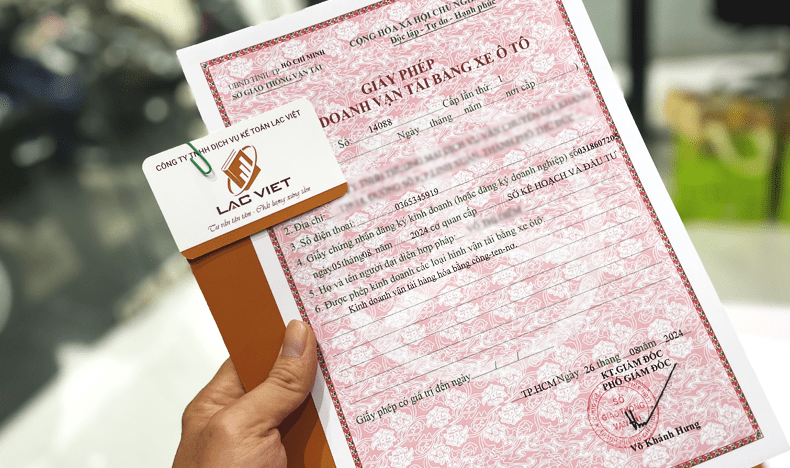 CỘNG HÒA XÃ HỘI CHỦ NGHĨA
Độc lập - Tự do - Hạnh phúc
UBND TỈNH, TP. HỒ CHÍ MINH
SỞ GIAO THÔNG VẬN TẢI
GIẤY PHÉP
DOANH VẬN TẢI BẰNG XE Ô TÔ
Số: 14088 Cấp lần thứ: 1
Ngày tháng năm nơi cấp )
CÔNG TY TNHH DỊCH VỤ KẾ TOÁN LẠC VIỆT
LAC VIET
Tư vấn tận tâm - Chất lượng xứng tầm
2. Địa chỉ:
3. Số điện thoại: 0365345919
4. Giấy chứng nhận đăng ký kinh doanh (hoặc đăng ký doanh nghiệp) số 031860720
ngày 05 tháng 08 năm 2024 cơ quan cấp SỞ KẾ HOẠCH VÀ ĐẦU TƯ
5. Họ và tên người đại diện hợp pháp
6. Được phép kinh doanh các loại hình vận tải bằng xe ôtô:
Kinh doanh vận tải hàng hóa bằng công-ten-nơ.
Giấy phép có giá trị đến ngày / /
TP.HCM Ngày 26 tháng 08 năm 2024
KT.GIÁM ĐỐC
PHÓ GIÁM ĐỐC
SỞ
Võ Khánh Hưng